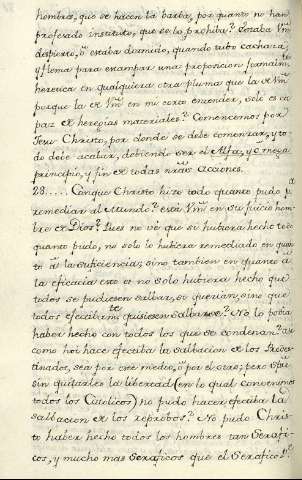 hombres, que se hacen la barba, por quanto no han
profesado instituto, que se lo prohiba? Estaba Vm
despierto, ò estaba dormido, quando tubo cachaza,
y flema para estampar una proposicion formalmte
heretica en qualquiera otra pluma que la de Vm
porque la de Vm en mi corto entender, solo es ca
paz de heregias materiales? Comencemos por
Jesu Christo, por donde se debe comenzar, y to
do debe acabar, debiendo ser el Alfa, y Omega
principio, y fin de todas nras acciones.
28.... Conque Christo hizo todo quanto pudo pa
remediar al Mundo? està Vm en su juicio hom
bre de Dios? Pues no vè que si hubiera hecho todo
quanto pudo, no solo lo hubiera remediado en quan
to à la suficiencia, sino tambien en quanto à
la eficacia esto es no solo hubiera hecho que
todos se pudiesen salbar, si querian, sino que
todos efectibamte quisiesen salbarse? No lo podia
haber hecho con todos los que se condenan? asi
como hoi hace efectiba la salbacion de los Predes-
tinados, sea por este medio, ò por el otro; pero
sin quitarles la libertad (en lo qual convenimos
todos los Catolicos) no pudo hacer efectiba la
salbacion de los reprobos? No pudo Chris-
to haber hecho todos los hombres tan Serafi-
cos, y mucho mas Seraficos que el Serafico S.n